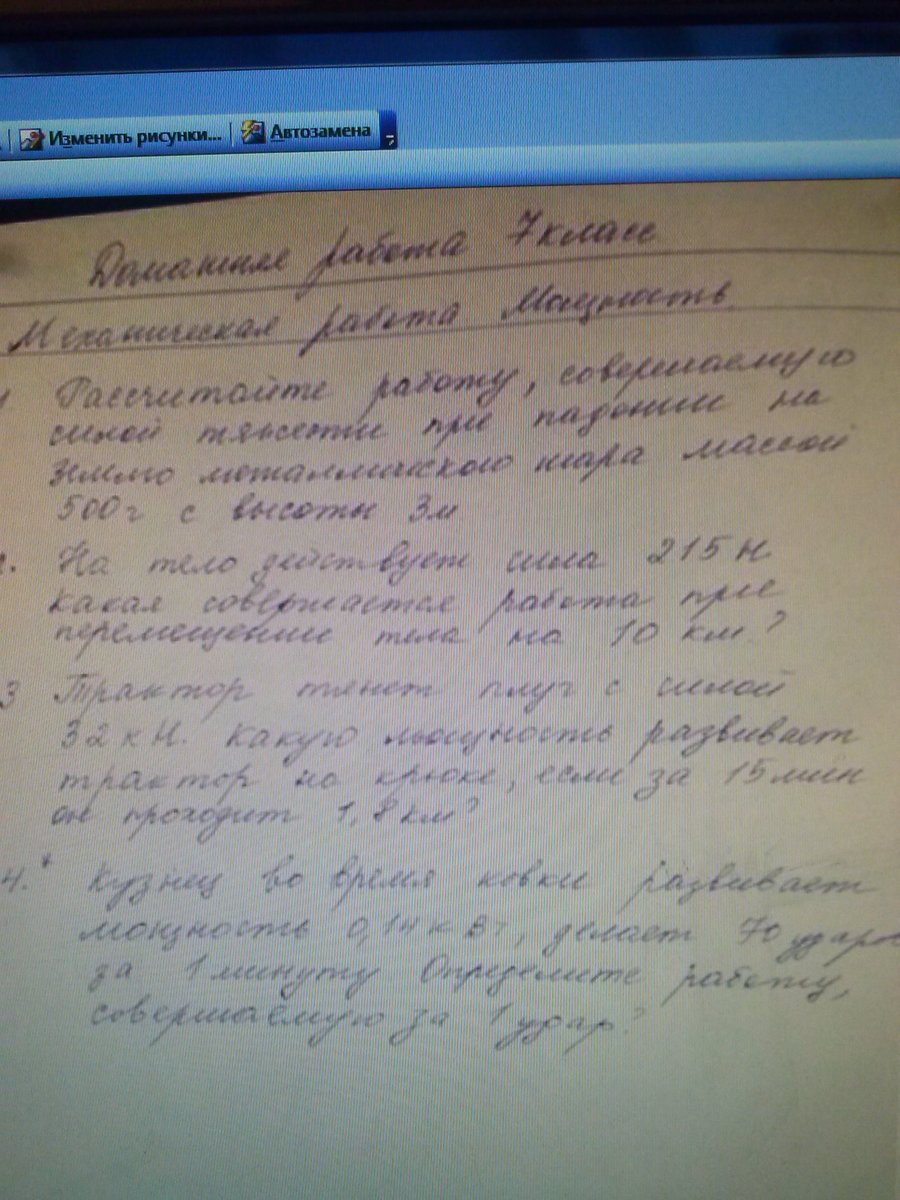 Изменить рисунки... Автозамена
Домашняя работа 7 класс
Механическая работа Мощность
Рассчитайте работу, совершаемую
силой тяжести при падении на
Землю металлического шара массой
500 г с высоты 3м
На тело действует сила 215 Н.
Какая совершается работа при
перемещении тела на 10 км?
3 Трактор тянет плуг с силой
32 кН. Какую мощность развивает
трактор на крюке, если за 15 мин
он проходит 1,8 км?
4.* Кузнец во время ковки развивает
мощность 0,14 кВт, делает 70 ударов
за 1 минуту Определите работу,
совершаемую за 1 удар?